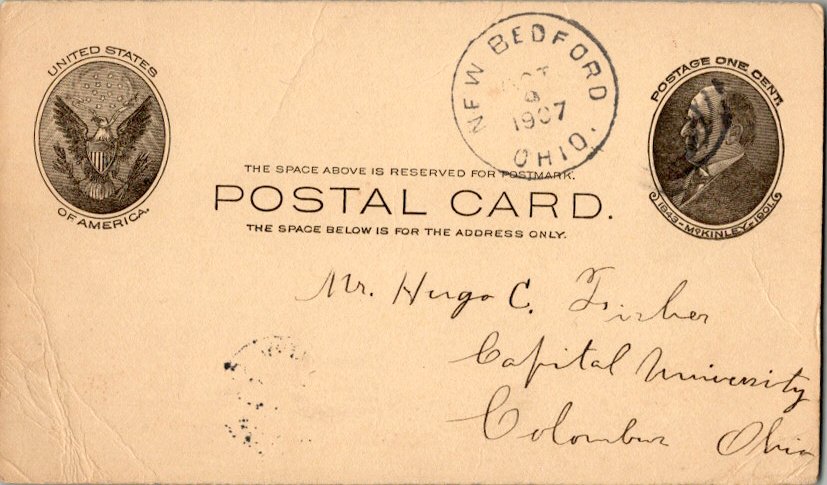 UNITED STATES
OF AMERICA.
NEW BEDFORD
OCT
1907
OHIO.
POSTAGE ONE CENT.
1843-McKINLEY-1901
THE SPACE ABOVE IS RESERVED FOR POSTMARK.
POSTAL CARD.
THE SPACE BELOW IS FOR THE ADDRESS ONLY.
Mr. Hugo C. Fisher
Capital University
Columbus Ohio